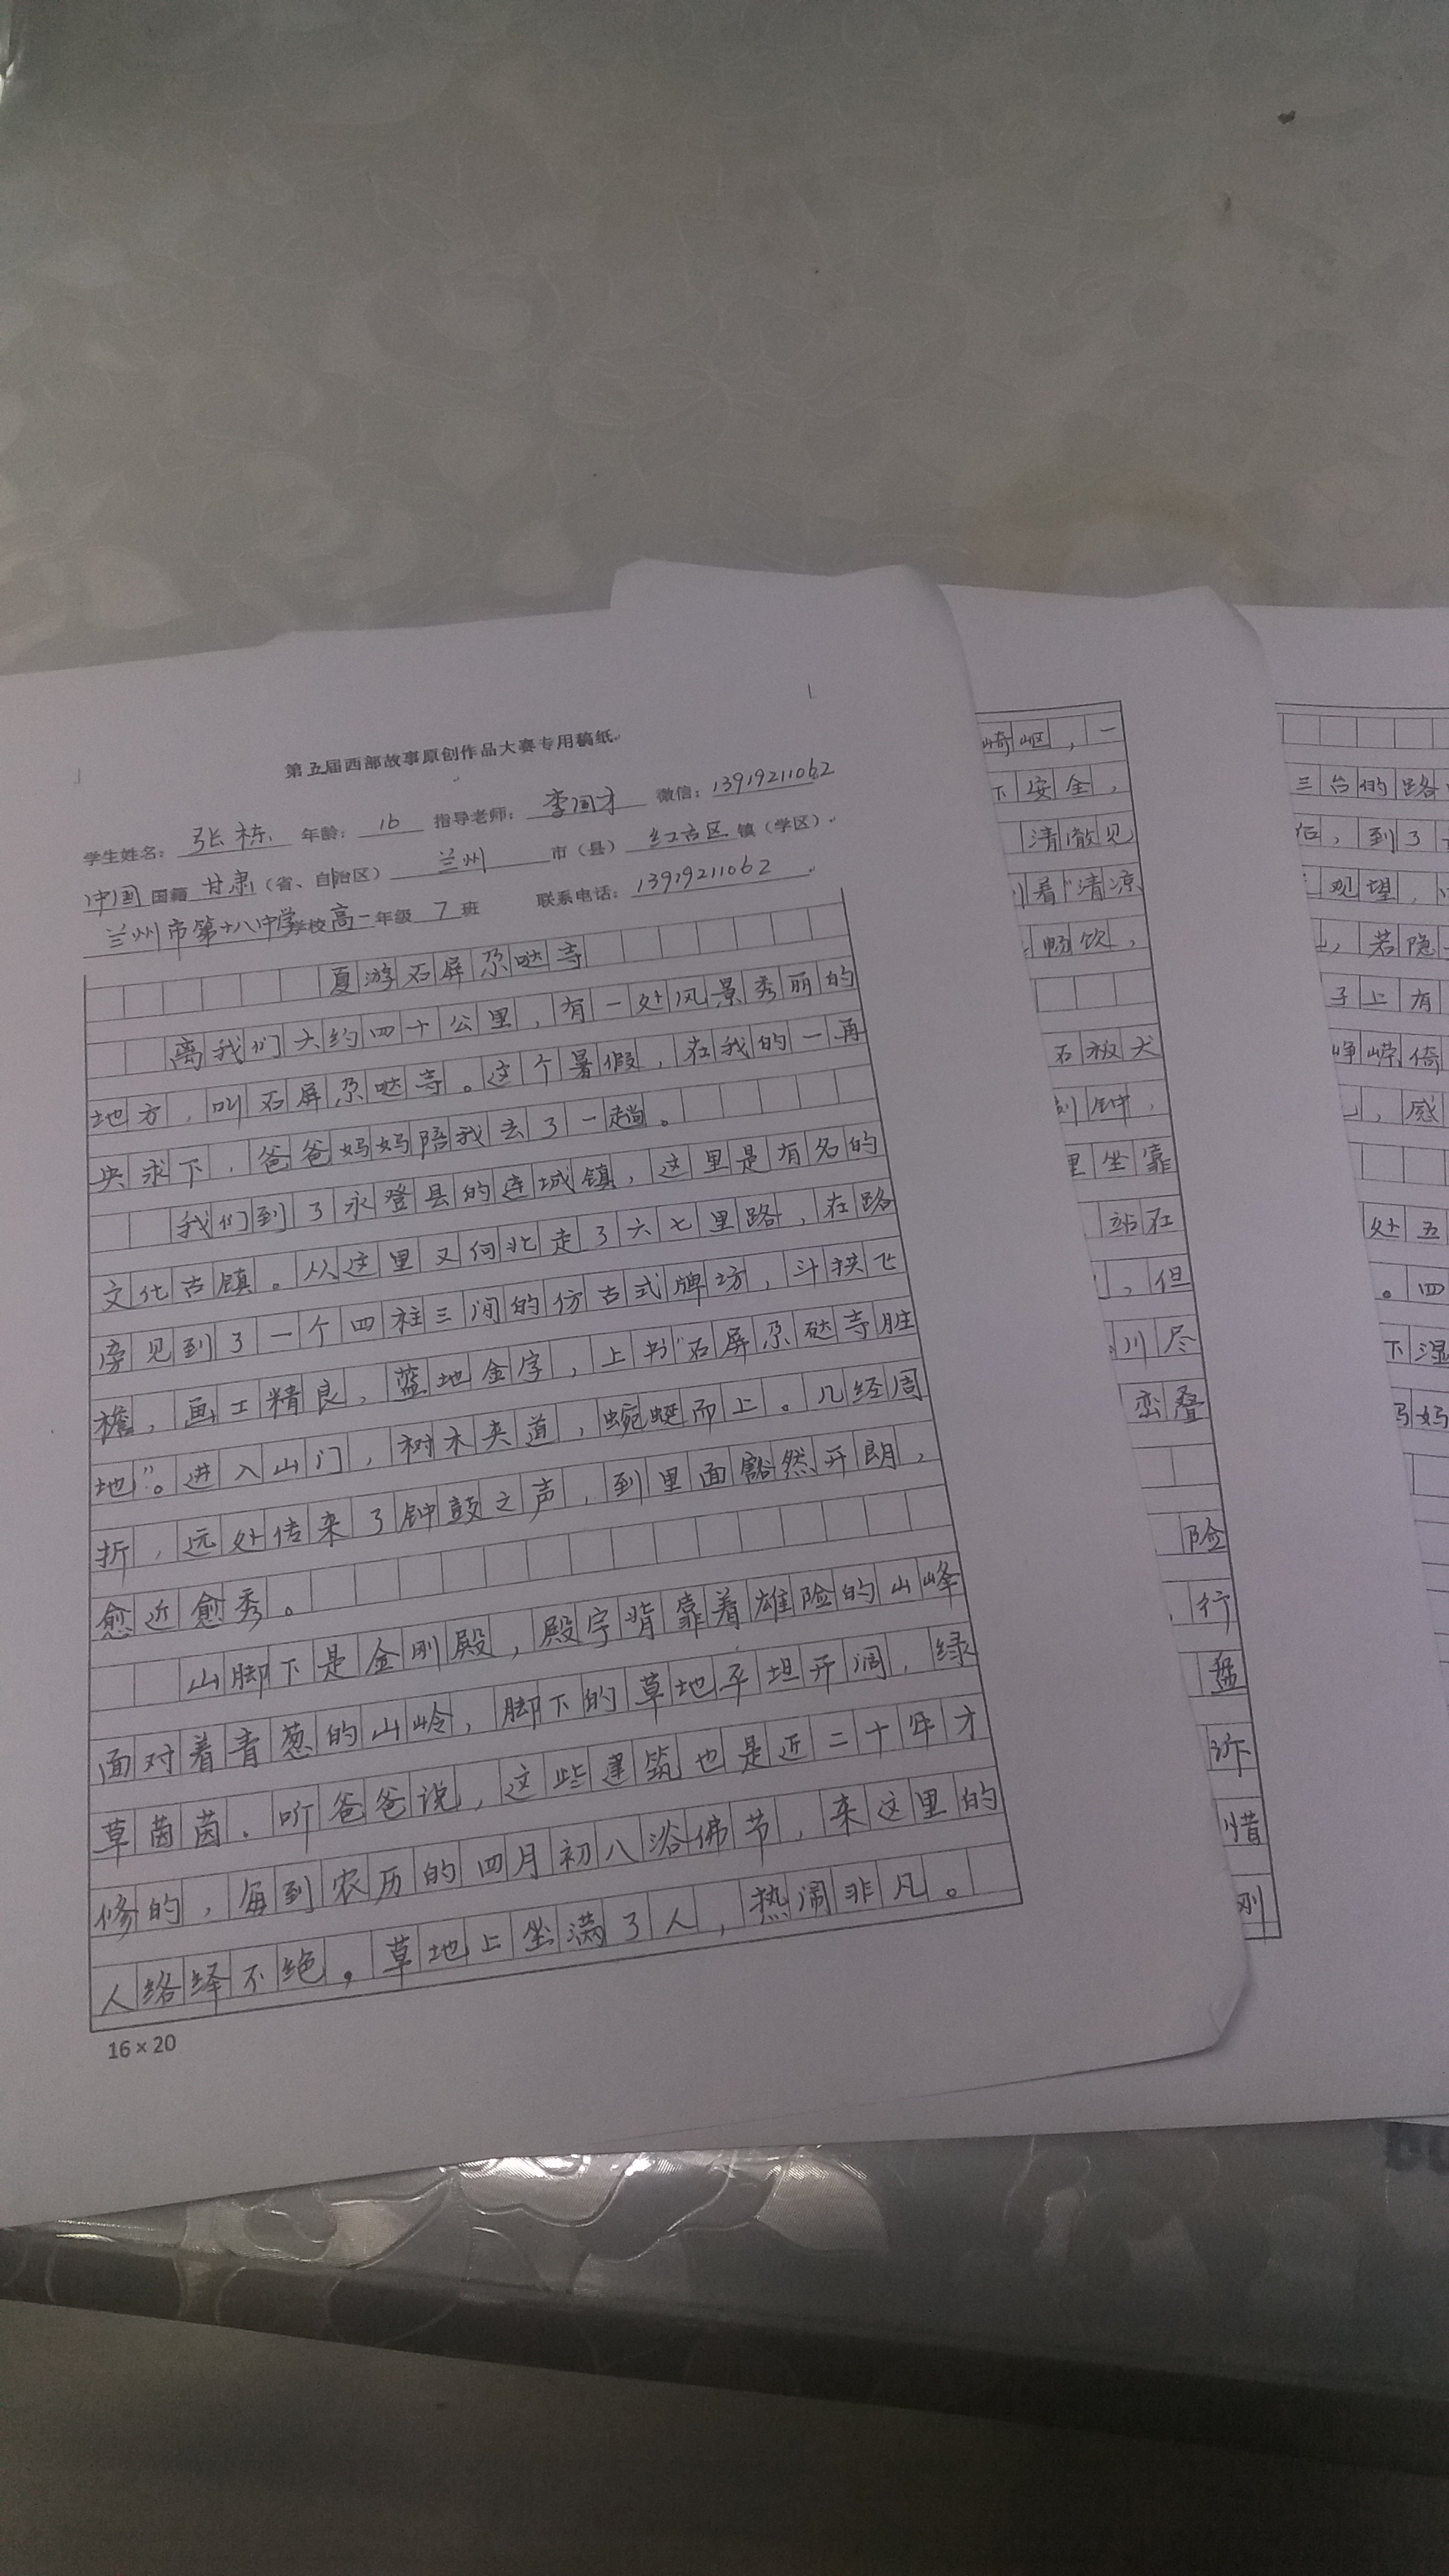 第五届西部故事原创作品大赛专用稿纸
学生姓名：张栋 年龄：16 指导老师：李 才 微信：13919211062
中国国籍 甘肃（省、自治区） 兰州 市（县） 红古区 镇（学区）
兰州市第十八中学学校 高一年级 7 班 联系电话：13919211062
夏游石屏尕哒寺
离我们大约四十公里，有一处风景秀丽的
地方，叫石屏尕哒寺。这个暑假，在我的一再
央求下，爸爸妈妈陪我去了一趟。
我们到了永登县的连城镇，这里是有名的
文化古镇。从这里又向北走了六七里路，在路
旁见到了一个四柱三间的仿古式牌坊，斗拱飞
檐，画工精良，蓝地金字，上书“石屏尕哒寺胜
地”。进入山门，树木夹道，蜿蜒而上。几经周
折，远处传来了钟鼓之声，到里面豁然开朗，
愈近愈秀。
山脚下是金刚殿，殿宇背靠着雄险的山峰
面对着青葱的山岭，脚下的草地平坦开阔，绿
草茵茵。听爸爸说，这些建筑也是近二十年才
修的，每到农历的四月初八浴佛节，来这里的
人络绎不绝。草地上坐满了人，热闹非凡。
16×20
崎岖，一
下安全，
清澈见
着“清凉
畅饮，
石板犬
刻钟，
里坐靠
站在
，但
川尽
峦叠
险
，行
盘
惜
刚
三台的路
后，到了
观望，
，若隐
子上有
峥嵘倚
，感
处五
。四
下湿
妈妈